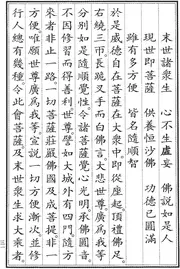 末世諸衆生　心不生虛妄　佛說如是人
現世即菩薩　供養恒沙佛　功德已圓滿
雖有多方便　皆名隨順智
於是威德自在菩薩在大衆中即從座起頂禮佛足
右繞三帀長跪叉手而白佛言大悲世尊廣爲我等
分別如是隨順覺性令諸菩薩覺心光明承佛圓音
不因修習而得善利世尊譬如大城外有四門隨方
來者非止一路一切菩薩莊嚴佛國及成菩提非一
方便唯願世尊廣爲我等宣說一切方便漸次并修
行人總有幾種令此會菩薩及末世衆生求大乘者